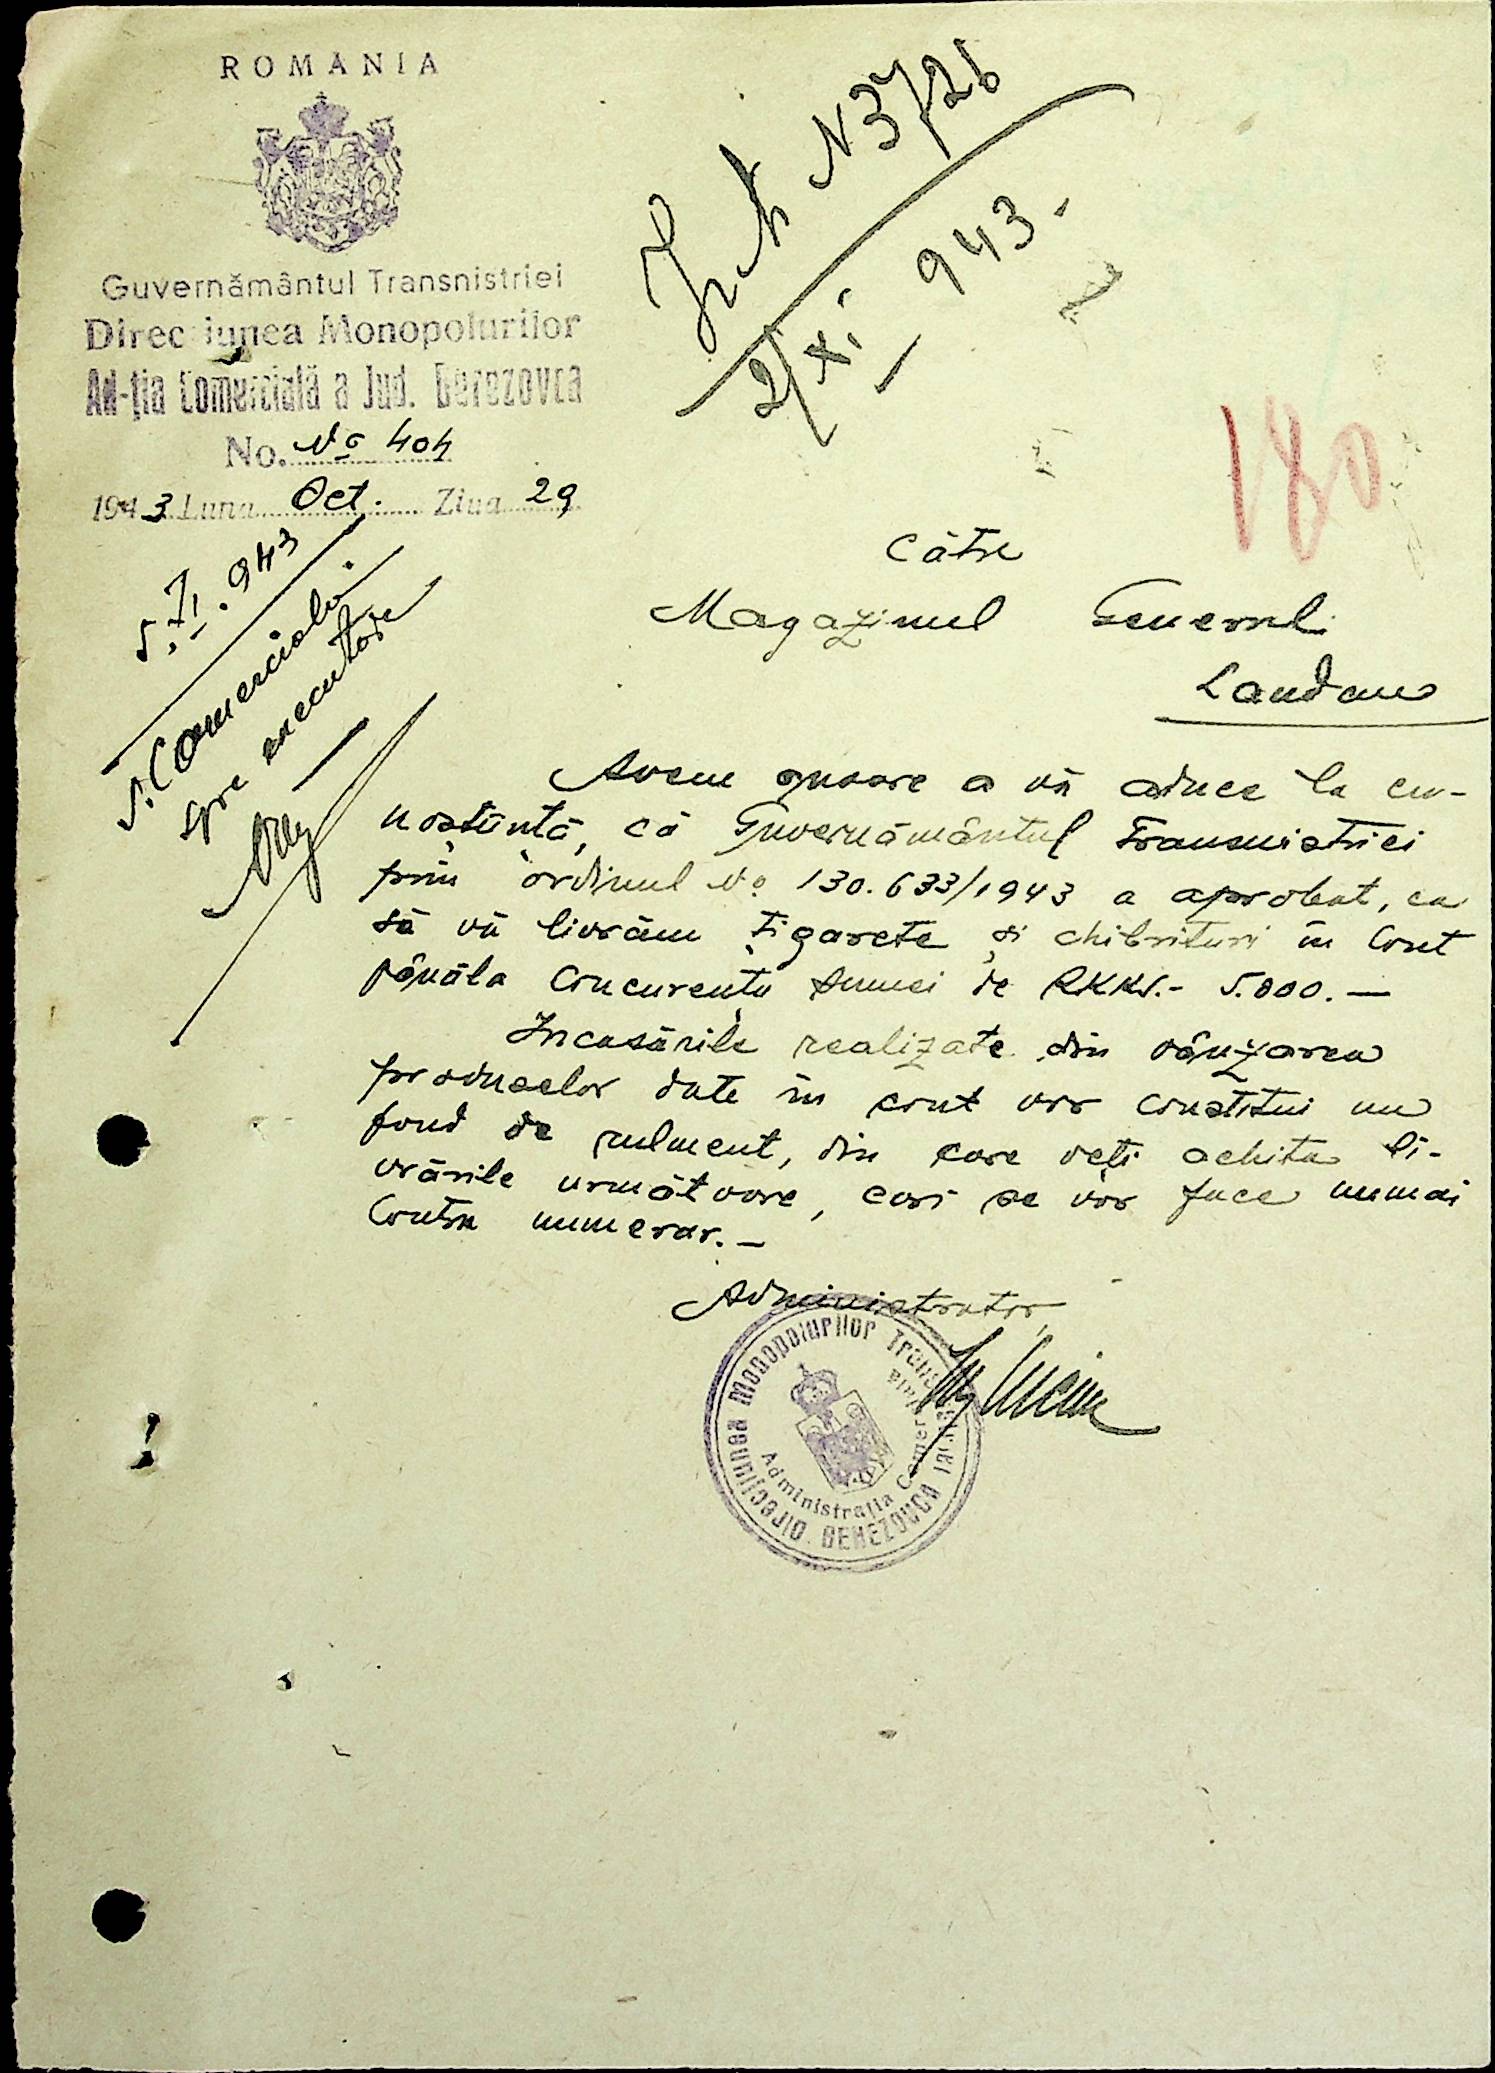 ROMANIA
Guvernământul Transnistriei
Direcțiunea Monopolurilor
Ad-ția Comercială a Jud. Berezovca
No. No 404
1943 Luna Oct. Ziua 29
Int N 3726
2/XI 943.
180
5.XI.943
S. Comercială
spre executare
Către
Magazinul General
Landau
Avem onoare a vă aduce la cu-
noștiință, că Guvernământul Transnistriei
prin ordinul No 130.633/1943 a aprobat, ca
să vă livrăm țigarete și chibrituri în Cont
pănăla Concurența sumei de RKKS.- 5.000.—
Incasările realizate din vânzarea
produselor date în cont vor constitui un
fond de rulment, din care veți achita li-
vrările următoare, cari se vor face numai
Contra numerar.—
Administrator,
Direcțiunea Monopolurilor Transnistriei
Administrația Comercială
BEREZOVCA